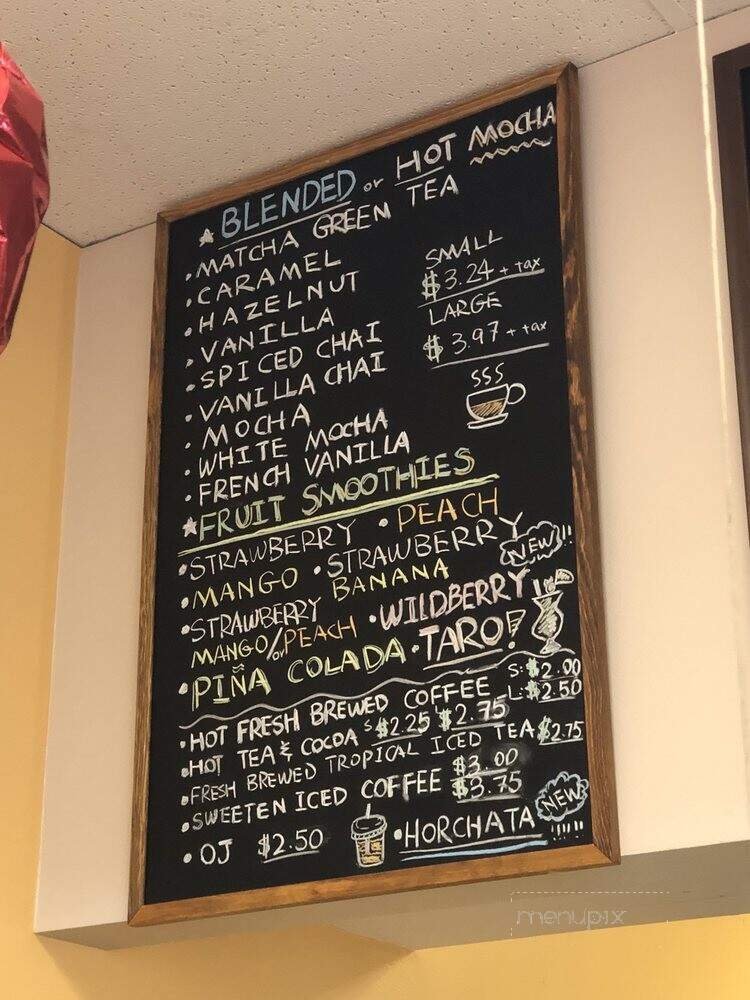 BLENDED or HOT MOCHA
• MATCHA GREEN TEA
• CARAMEL
• HAZELNUT
• VANILLA
• SPICED CHAI
• VANILLA CHAI
• MOCHA
• WHITE MOCHA
• FRENCH VANILLA
SMALL
$3.24 + tax
LARGE
$3.97 + tax
FRUIT SMOOTHIES
• STRAWBERRY • PEACH
• MANGO • STRAWBERRY BANANA
NEW!!
• STRAWBERRY MANGO/or PEACH • WILDBERRY
• PIÑA COLADA • TARO!
• HOT FRESH BREWED COFFEE S: $2.00 L: $2.50
• HOT TEA & COCOA S $2.25 L $2.75
• FRESH BREWED TROPICAL ICED TEA $2.75
• SWEETEN ICED COFFEE $3.00 $3.75
• OJ $2.50 • HORCHATA NEW !!!!!
menupix